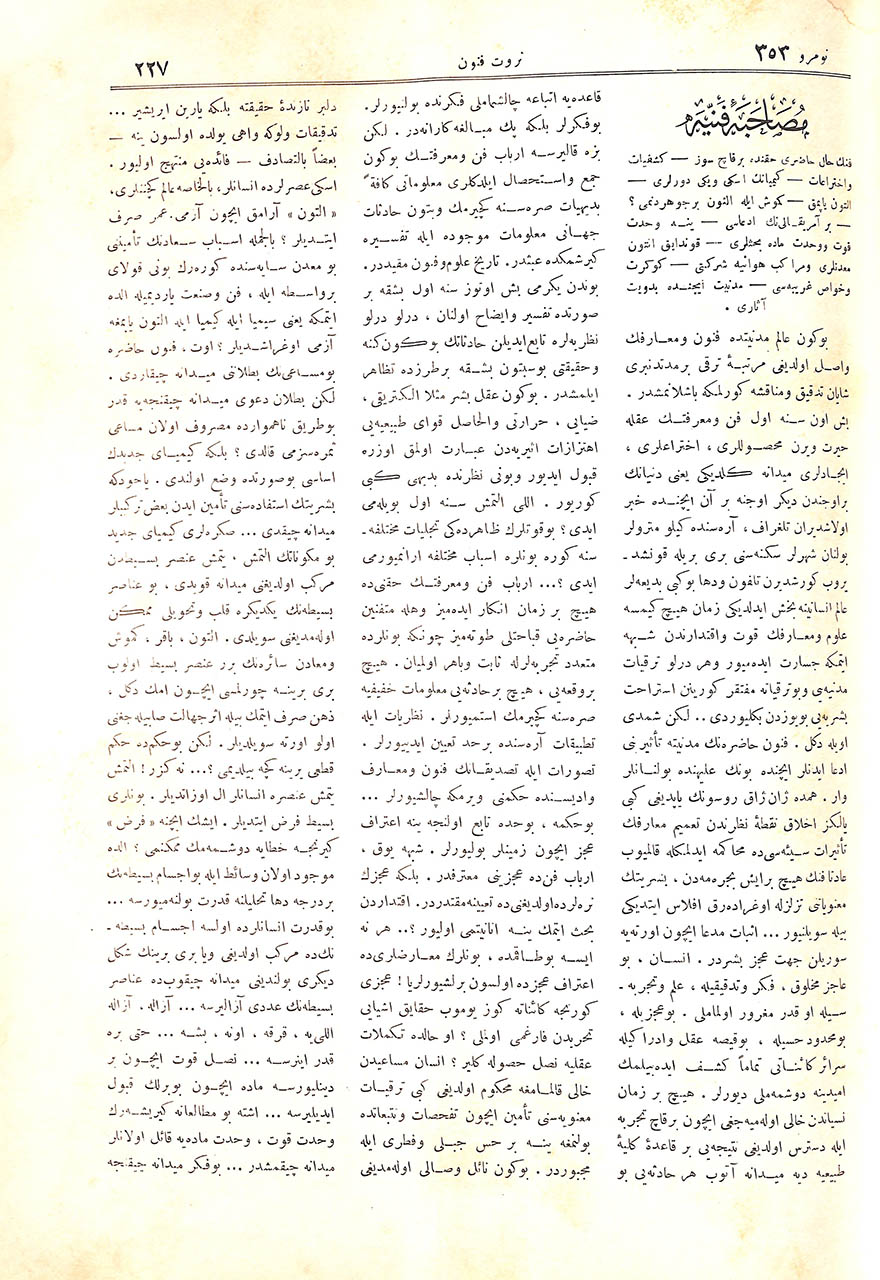 نومرو ٣٥٣
ثروت فنون
٢٢٧
مصاحبۀ فنیه
فنك حال حاضری حقنده برقاچ سوز — كشفیات
واختراعات — كیمیانك اسكی ویكی دورلری —
التون یاپمق — كوش ایله التون برجوهردنمی ؟
— بر آمریقالی‌نك ادعاسی — ینه وحدت
قوت ووحدت ماده بحثلری — قوندایق آنتون
معدنلری ومراكب هوائیه شركتی — كوكرت
وخواص غریبه‌سی — مدنیت ایچنده بدویت
آثاری .
بوكون عالم مدنیتده فنون ومعارفك
واصل اولدیغی مرتبۀ ترقی برمدتدنبری
شایان تدقیق ومناقشه كورلمكه باشلانمشدر .
بش اون سنه اول فن ومعرفتك عقله
حیرت ویرن محصوللری ، اختراعلری ،
ایجادلری میدانه كلدیكی یعنی دنیانك
براوجندن دیكر اوجنه بر آن ایچنده خبر
اولاشدیران تلغراف ، آره‌سنده كیلو مترولر
بولنان شهرلر سكنه‌سنی بری بریله قونشد ـ
یروب كورشدیرن تلفون ودها بوكبی بدیعه‌لر
عالم انسانیته بخش ایدلدیكی زمان هیچ كیمسه
علوم ومعارفك قوت واقتدارندن شبهه
ایتمكه جسارت ایده‌میور وهر درلو ترقیات
مدنیه‌یی وبوترقیاته مفتقر كورینن استراحت
بشریه‌یی بویوزدن بكلیوردی .. لكن شمدی
اویله دكل . فنون حاضره‌نك مدنیته تأثیرنی
ادعا ایدنلر ایچنده بونك علیهنده بولنانلر
وار . همده ژان ژاق روسونك یاپدیغی كبی
یالكز اخلاق نقطۀ نظرندن تعمیم معارفك
تأثیرات سیئه‌سی‌ده محاكمه ایدلمكله قالمیوب
عادتا فنك هیچ برایش بجره‌مه‌دن ، بشریتك
معنویاتی تزلزله اوغراده‌رق افلاس ایتدیكی
بیله سویلنیور ... اثبات مدعا ایچون اورته‌یه
سوریلن جهت عجز بشردر . انسان ، بو
عاجز مخلوق ، فكر وتدقیقیله ، علم وتجربه ـ
سیله او قدر مغرور اولماملی . بوعجزیله ،
بومحدود حسیله ، بوقیصه عقل وادراكیله
سرائر كائناتی تماماً كشف ایده‌بیلمك
امیدینه دوشمه‌ملی دیورلر . هیچ بر زمان
نسیاندن خالی اوله‌میه‌جغی ایچون برقاچ تجربه
ایله دسترس اولدیغی نتیجه‌یی بر قاعدۀ كلیۀ
طبیعیه دیه میدانه آتوب هر حادثه‌یی بو
قاعده‌یه اتباعه چالشماملی فكرنده بولنیورلر .
بوفكرلر بلكه پك مبالغه كارانه‌در . لكن
بزه قالیرسه ارباب فن ومعرفتك بوكون
جمع واستحصال ایلدكلری معلوماتی كافةً
بدیهیات صره‌سنه كچیرمك وبتون حادثات
جهانی معلومات موجوده ایله تفسیره
كیرشمكده عبثدر . تاریخ علوم وفنون مفیددر .
بوندن یكرمی بش اوتوز سنه اول بشقه بر
صورتده تفسیر وایضاح اولنان ، درلو درلو
نظریه‌لره تابع ایدیلن حادثاتك بوكون كنه
وحقیقتی بوسبتون بشقه برطرزده تظاهر
ایلمشدر . بوكون عقل بشر مثلا الكتریقی ،
ضیایی ، حرارتی والحاصل قوای طبیعیه‌یی
اهتزازات اثیریه‌دن عبارت اولمق اوزره
قبول ایدیور وبونی نظرنده بدیهی كبی
كوریور . اللی التمش سنه اول بویله‌می
ایدی ؟ بوقوتلرك ظاهرده‌كی تجلیات مختلفه ـ
سنه كوره بونلره اسباب مختلفه ارانمیورمی
ایدی ؟ ... ارباب فن ومعرفتك حقنی‌ده
هیچ بر زمان انكار ایده‌میز وهله متفنین
حاضره‌یی قباحتلی طوته‌میز چونكه بونلرده
متعدد تجربه‌لرله ثابت وباهر اولمیان . هیچ
بروقعه‌یی ، هیچ برحادثه‌یی معلومات خفیفیه
صره‌سنه كچیرمك استمیورلر . نظریات ایله
تطبیقات آره‌سنده برحد تعیین ایدییورلر .
تصورات ایله تصدیقاتك فنون ومعارف
وادیسنده حكمنی ویرمكه چالشیورلر ...
بوحكمه ، بوحده تابع اولنجه ینه اعتراف
عجز ایچون زمینلر بولیورلر . شبهه یوق ،
ارباب فن‌ده عجزینی معترفدر . بلكه عجزك
نره‌لرده اولدیغنی‌ده تعیینه مقتدردر . اقتداردن
بحث ایتمك ینه انانیتمی اولیور ؟ .. هر نه
ایسه بوطاقده ، بونلرك معارضلری‌ده
اعتراف عجزده اولسون برلشیورلریا ! عجزی
كورنجه كائناته كوز یوموب حقایق اشیایی
تحریدن فارغمی اولملی ؟ او حالده تكملات
عقلیه نصل حصوله كلیر ؟ انسان مساعیدن
خالی قالمامغه محكوم اولدیغی كبی ترقیات
معنویه‌سنی تأمین ایچون تفحصات وتتبعاتده
بولنمغه ینه بر حس جبلی وفطری ایله
مجبوردر . بوكون نائل وصالی اوله‌مدیغی
دلبر نازنده حقیقته بلكه یارین ایریشیر ...
تدقیقات ولوكه واهی یولده اولسون ینه —
بعضاً بالتصادف — فائده‌یی منتج اولیور .
اسكی عصرلرده انسانلر ، بالخاصه عالم كچننلری ،
« التون » آرامق ایچون آزمی عمر صرف
ایتدیلر ؟ بالجمله اسباب سعادتك تأمیننی
بو معدن سایه‌سنده كوره‌رك بونی قولای
برواسطه ایله ، فن وصنعت یاردیمیله الده
ایتمكه یعنی سیمیا ایله كیمیا ایله التون یاپمغه
آزمی اوغراشدیلر ؟ اوت ، فنون حاضره
بومساعی‌نك بطلاننی میدانه چیقاردی .
لكن بطلان دعوی میدانه چیقنجه‌یه قدر
بوطریق ناهموارده مصروف اولان مساعی
ثمره‌سزمی قالدی ؟ بلكه كیمیای جدیدك
اساسی بوصورتده وضع اولندی . یاخودكه
بشریتك استفاده‌سنی تأمین ایدن بعض تركیبلر
میدانه چیقدی ... صكره‌لری كیمیای جدید
بو مكوناتك التمش ، یتمش عنصر بسیطدن
مركب اولدیغنی میدانه قویدی ، بو عناصر
بسیطه‌نك یكدیكره قلب وتحویلی ممكن
اوله‌مدیغنی سویلدی . التون ، باقر ، كموش
ومعادن سائره‌نك برر عنصر بسیط اولوب
بری برینه چورلمسی ایچون امك دكل ،
ذهن صرف ایتمك بیله اثر جهالت صایله‌جغی
اولو اورته سویلدیلر . لكن بوحكم‌ده حكم
قطعی یرینه كچه بیلدیمی ؟ ... نه كزر ! التمش
یتمش عنصره انسانلر ال اوزاتدیلر . بونلری
بسیط فرض ایتدیلر . ایشك ایچنه « فرض »
كیرنجه خطایه دوشمه‌مك ممكنمی ؟ الده
موجود اولان وسائط ایله بواجسام بسیطه‌نك
بردرجه دها تحلیلنه قدرت بولنه‌میورسه ...
بوقدرت انسانلرده اولسه اجسام بسیطه ـ
نك‌ده مركب اولدیغی ویا بری برینك شكل
دیكری بولندیغی میدانه چیقوب‌ده عناصر
بسیطه‌نك عددی آزالیرسه ... آزاله . آزاله
اللی‌یه ، قرقه ، اونه ، بشه ... حتی بره
قدر اینرسه ... نصل قوت ایچون بر
دینلیورسه ماده ایچون بوبرلك قبول
ایدیلیرسه ... اشته بو مطالعاته كیریشه‌رك
وحدت قوت ، وحدت ماده‌یه قائل اولانلر
میدانه چیقمشدر ... بوفكر میدانه چیقنجه